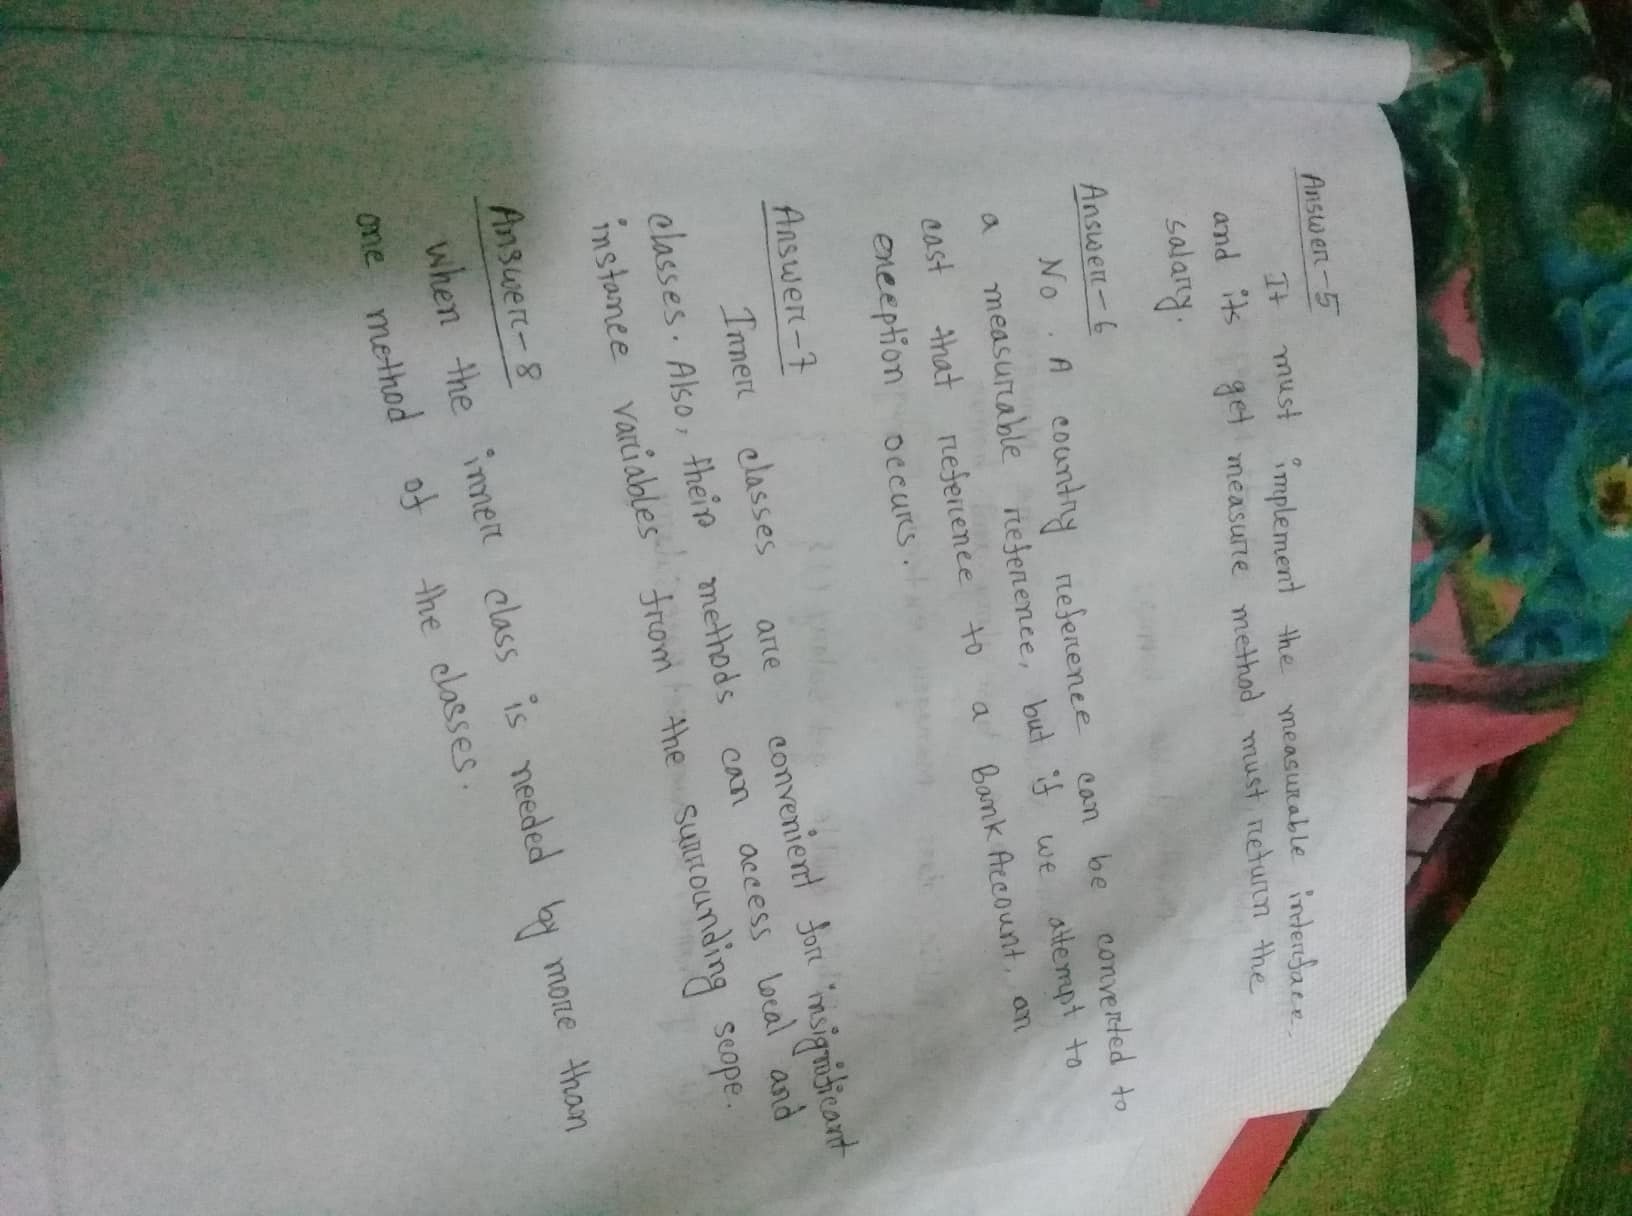 Answer-5
It must implement the measurable interface.
and its get measure method must return the
salary.
Answer-6
No. A country reference can be converted to
a measurable reference, but if we attempt to
cast that reference to a Bank Account, an
exception occurs.
Answer-7
Inner classes are convenient for insignificant
classes. Also, their methods can access local and
instance variables from the surrounding scope.
Answer-8
When the inner class is needed by more than
one method of the classes.